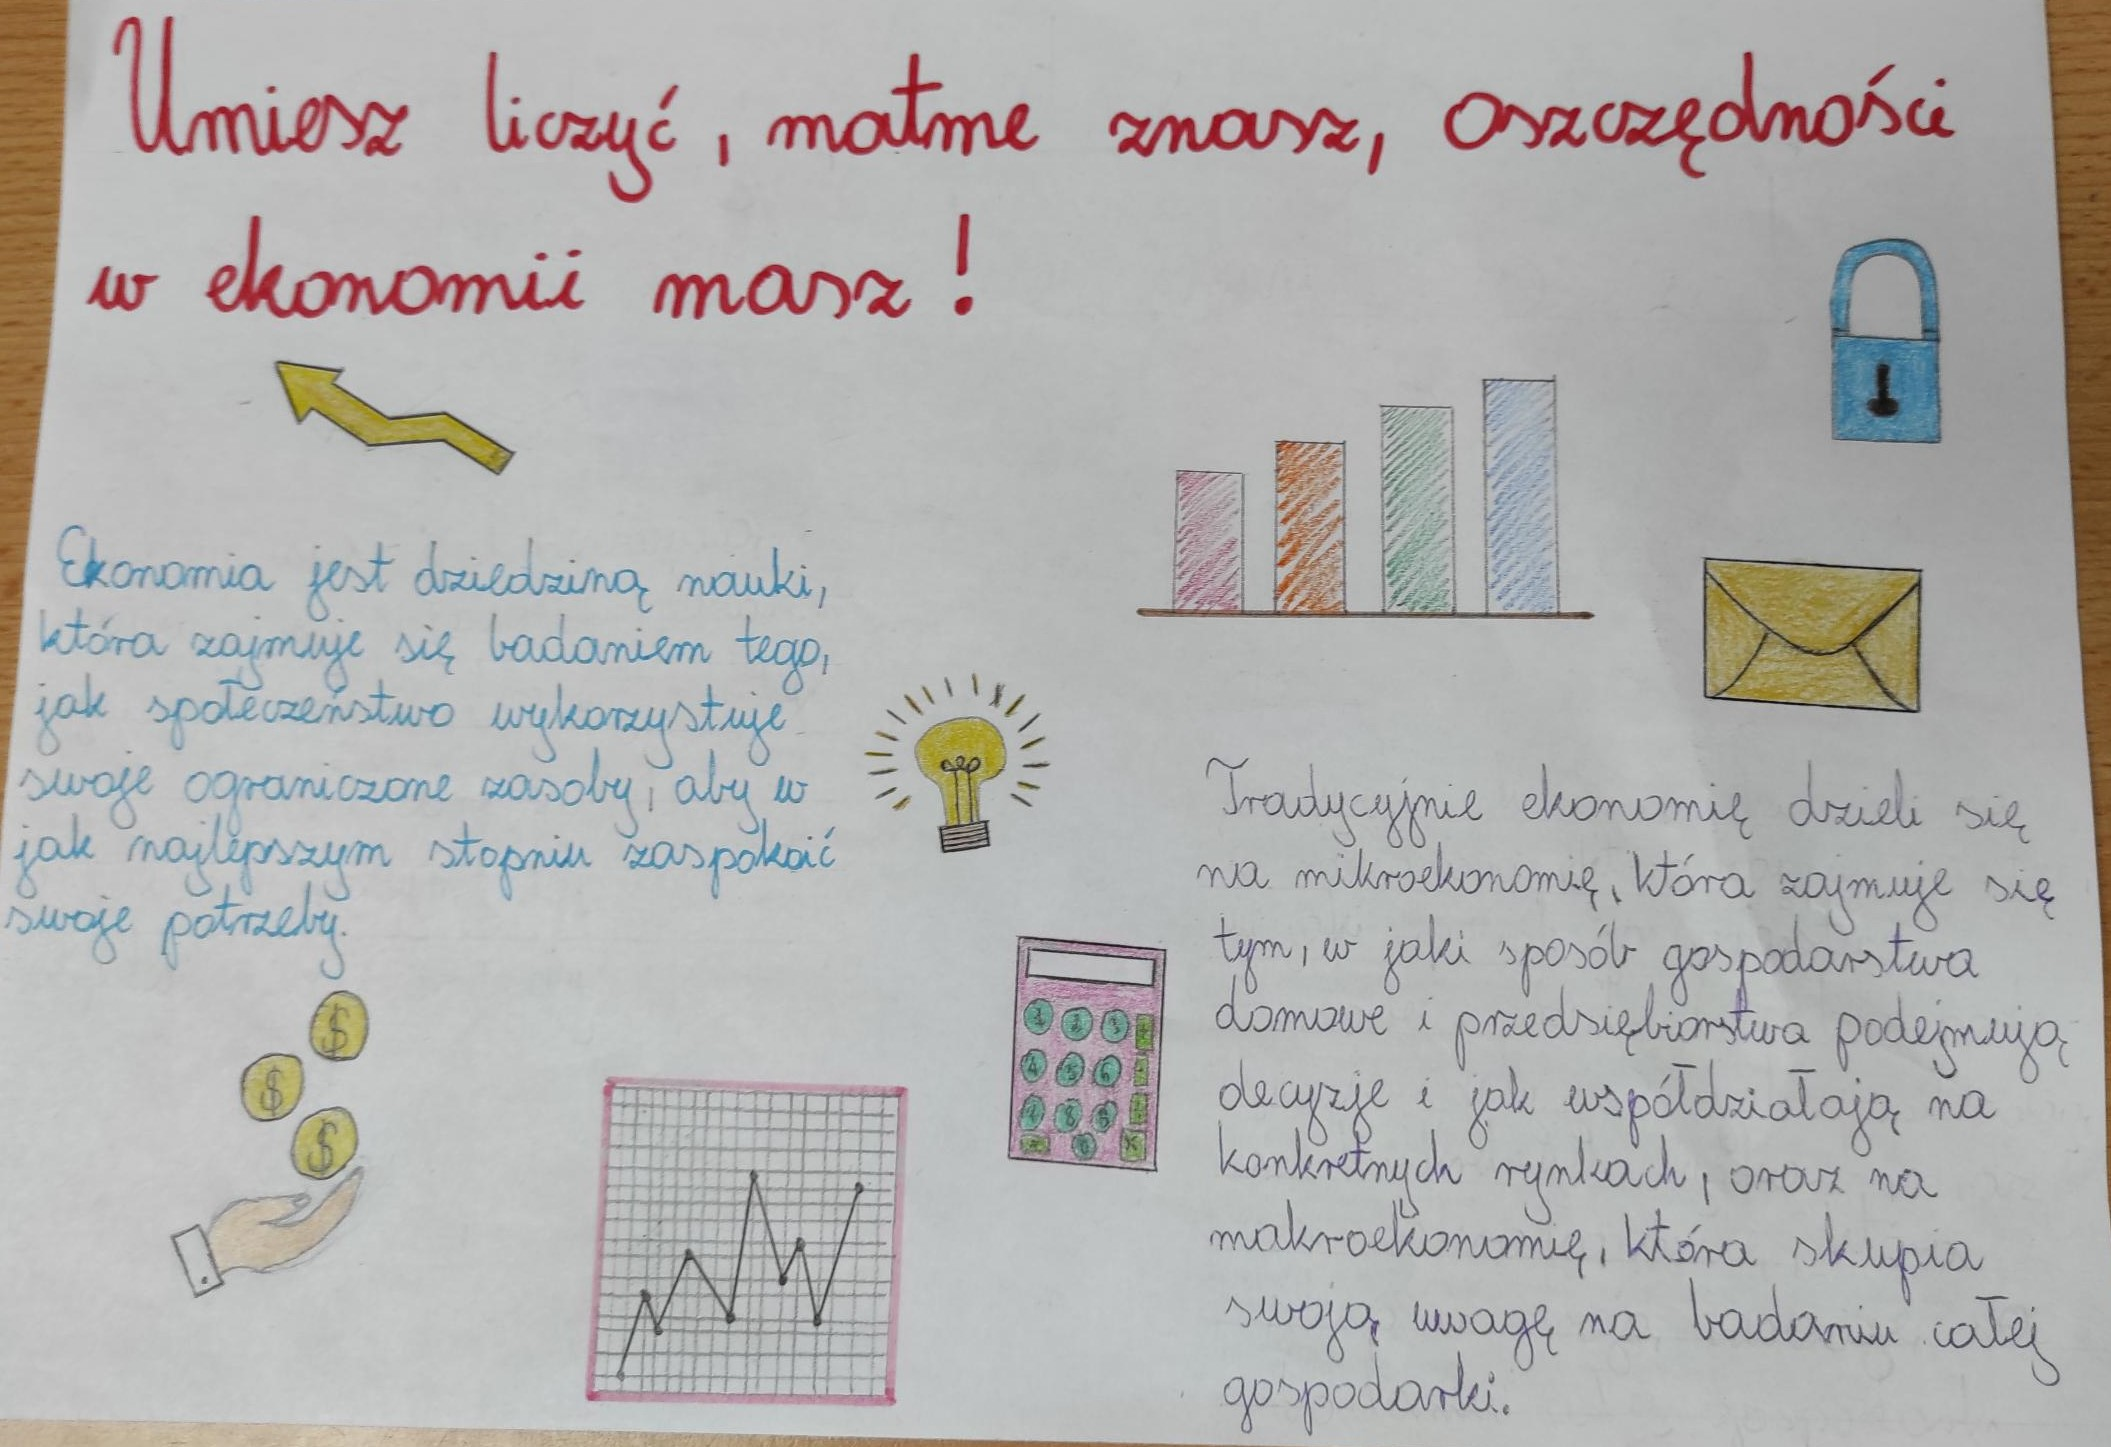 Umiesz liczyć, matme znasz, oszczędności
w ekonomii masz!
Ekonomia jest dziedziną nauki,
która zajmuje się badaniem tego,
jak społeczeństwo wykorzystuje
swoje ograniczone zasoby, aby w
jak najlepszym stopniu zaspokoić
swoje potrzeby.
$
$
$
1 2 3 +
4 5 6 -
7 8 9
= 0 x
Tradycyjnie ekonomię dzieli się
na mikroekonomię, która zajmuje się
tym, w jaki sposób gospodarstwa
domowe i przedsiębiorstwa podejmują
decyzje i jak współdziałają na
konkretnych rynkach, oraz na
makroekonomię, która skupia
swoją uwagę na badaniu całej
gospodarki.